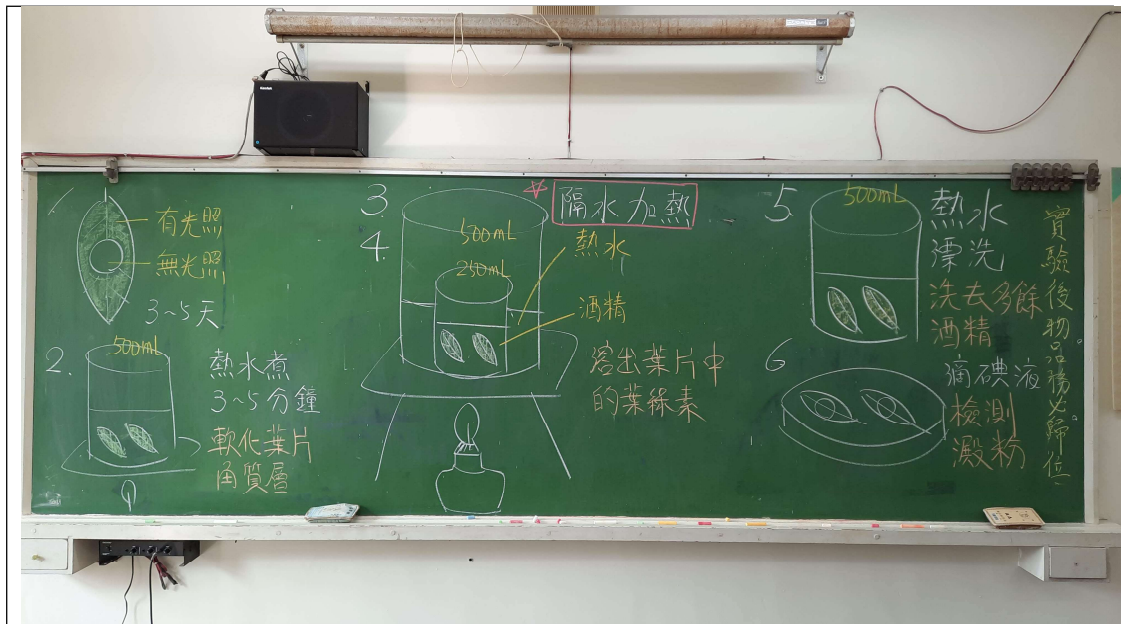 1
有光照
無光照
3~5天
2.
500mL
熱水煮
3~5分鐘
軟化葉片
角質層
3.
4.
隔水加熱
500mL
熱水
250mL
酒精
溶出葉片中
的葉綠素
5.
500mL
熱水
漂洗
洗去多餘
酒精
6
滴碘液
檢測
澱粉
實驗後物品務必歸位